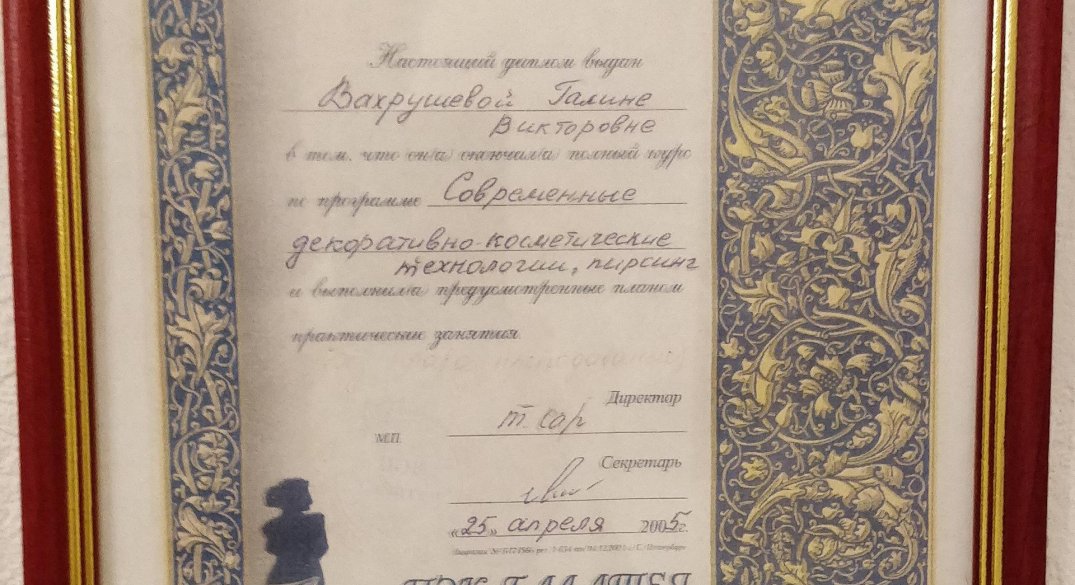 Настоящий диплом выдан
Вахрушевой Галине
Викторовне
в том, что он(а) окончил(а) полный курс
по программе Современные
декоративно-косметические
технологии, пирсинг
и выполнил(а) предусмотренные планом
практические занятия.
Директор
М.П.
Секретарь
«25» апреля 2005г.